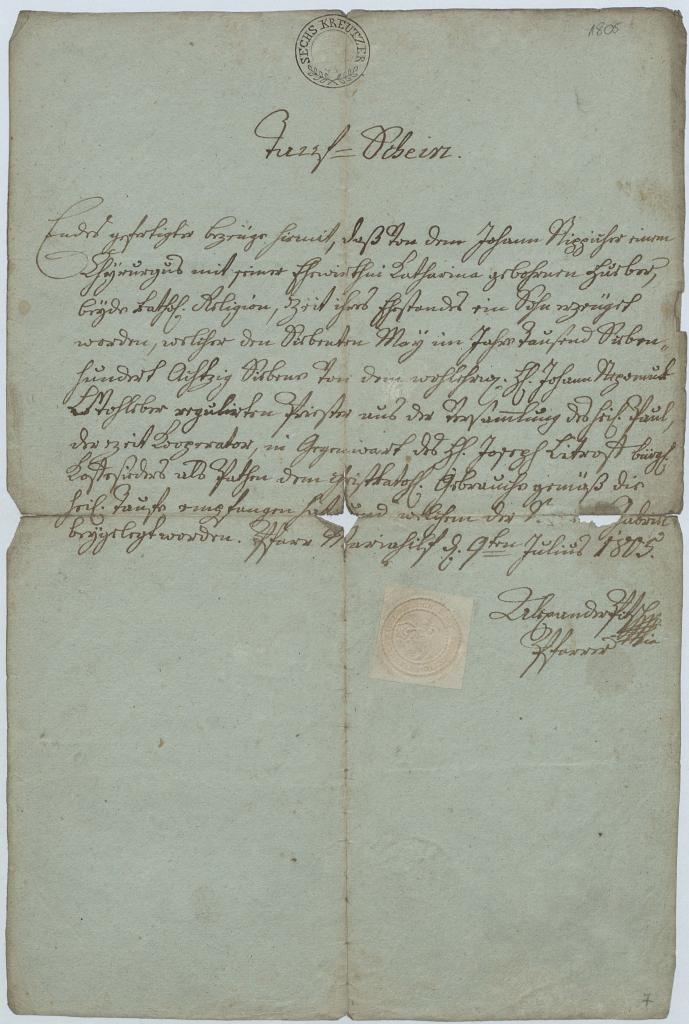 SECHS KREUTZER
1805
Tauf=Schein.
Endes gefertigter bezeuge hiemit, daß von dem Johann einem
Chyrurgus mit seiner Ehewirthin Katharina gebohrnen Hueber,
beyde kathol. Religion, Zeit ihres Ehestandes ein Sohn erzeuget
worden, welcher den Siebenten May im Jahre Tausend Sieben„
hundert Achtzig Siebene von dem wohlehrw: H. Johann Nepomuk
regulirten Priester aus der Versammlung des heil. Paul,
der zeit Kooperator, in Gegenwart des H. Joseph Litrost burgl.
Kaffesieders als Pathen dem christkathol. Gebrauche gemäß die
heil. Taufe empfangen hat und welchem der
beygelegt worden. Pfarr Mariahilf d. 9ten Julius 1805.
Alexander
Pfarrer
7